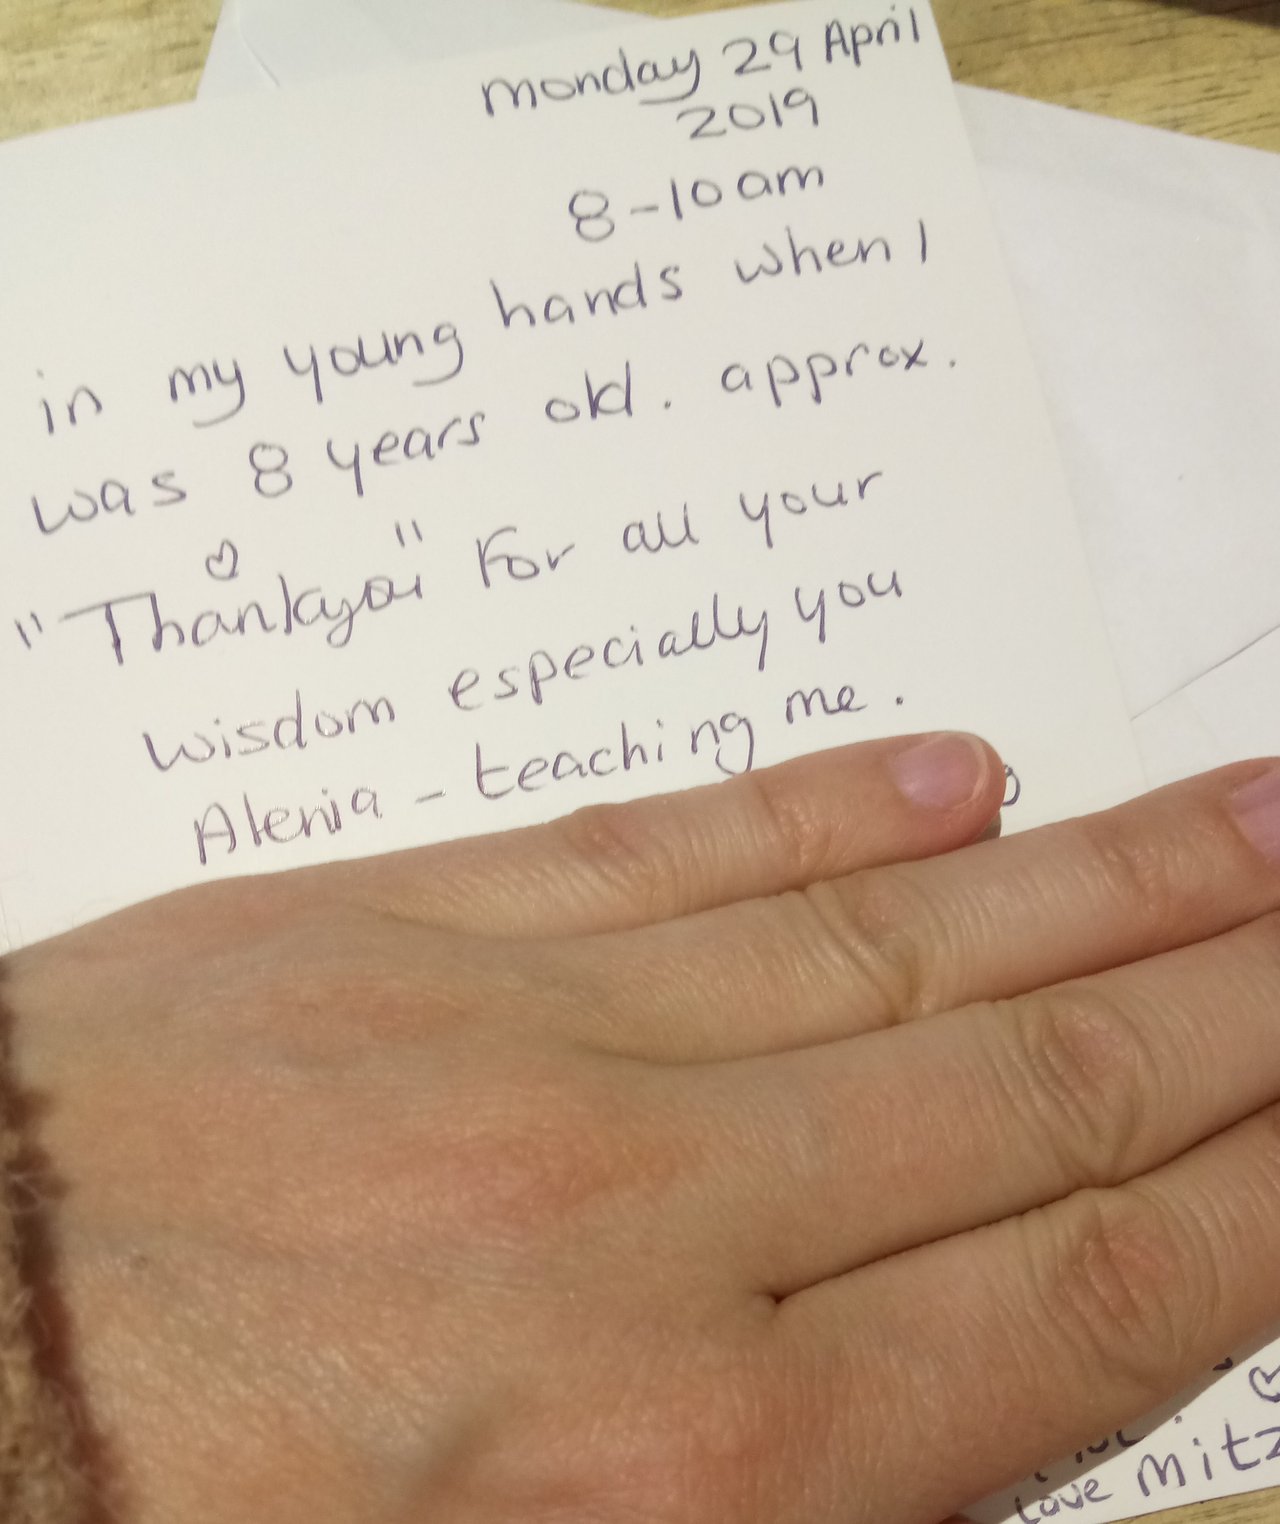 monday 29 April
2019
8-10am
in my young hands when I
was 8 years old. approx.
"Thankyou" For all your
wisdom especially you
Alenia - teaching me.
Love Mitz